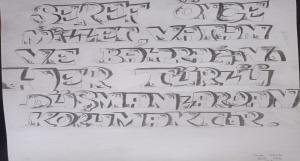 ŞEREF ÖNCE
MİLLET, VATANI
VE BAYRAĞINI
HER TÜRLÜ
DÜŞMANLARDAN
KORUMAKTIR.